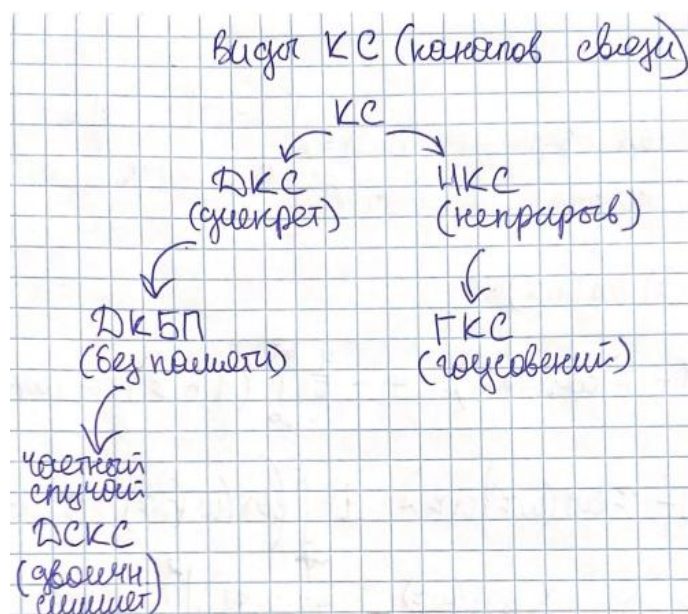 Виды КС (каналов связи)
КС
ДКС
(дискрет)
НКС
(непрырыв)
ДКБП
(без памяти)
ГКС
(гаусовский)
частный
случай
ДСКС
(двоичн.
симмет)